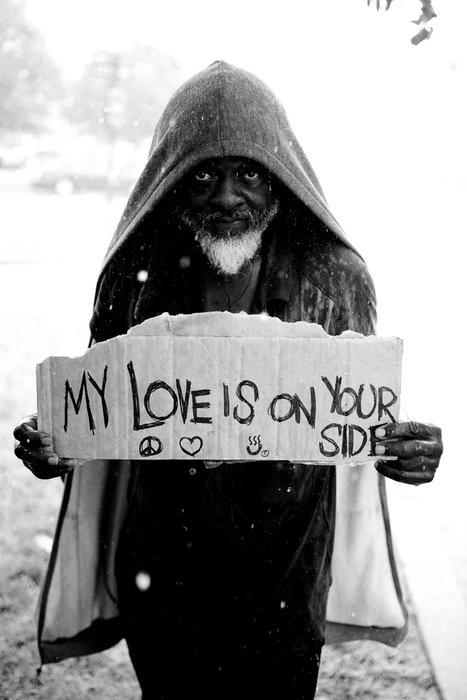 MY LOVE IS ON YOUR
SIDE